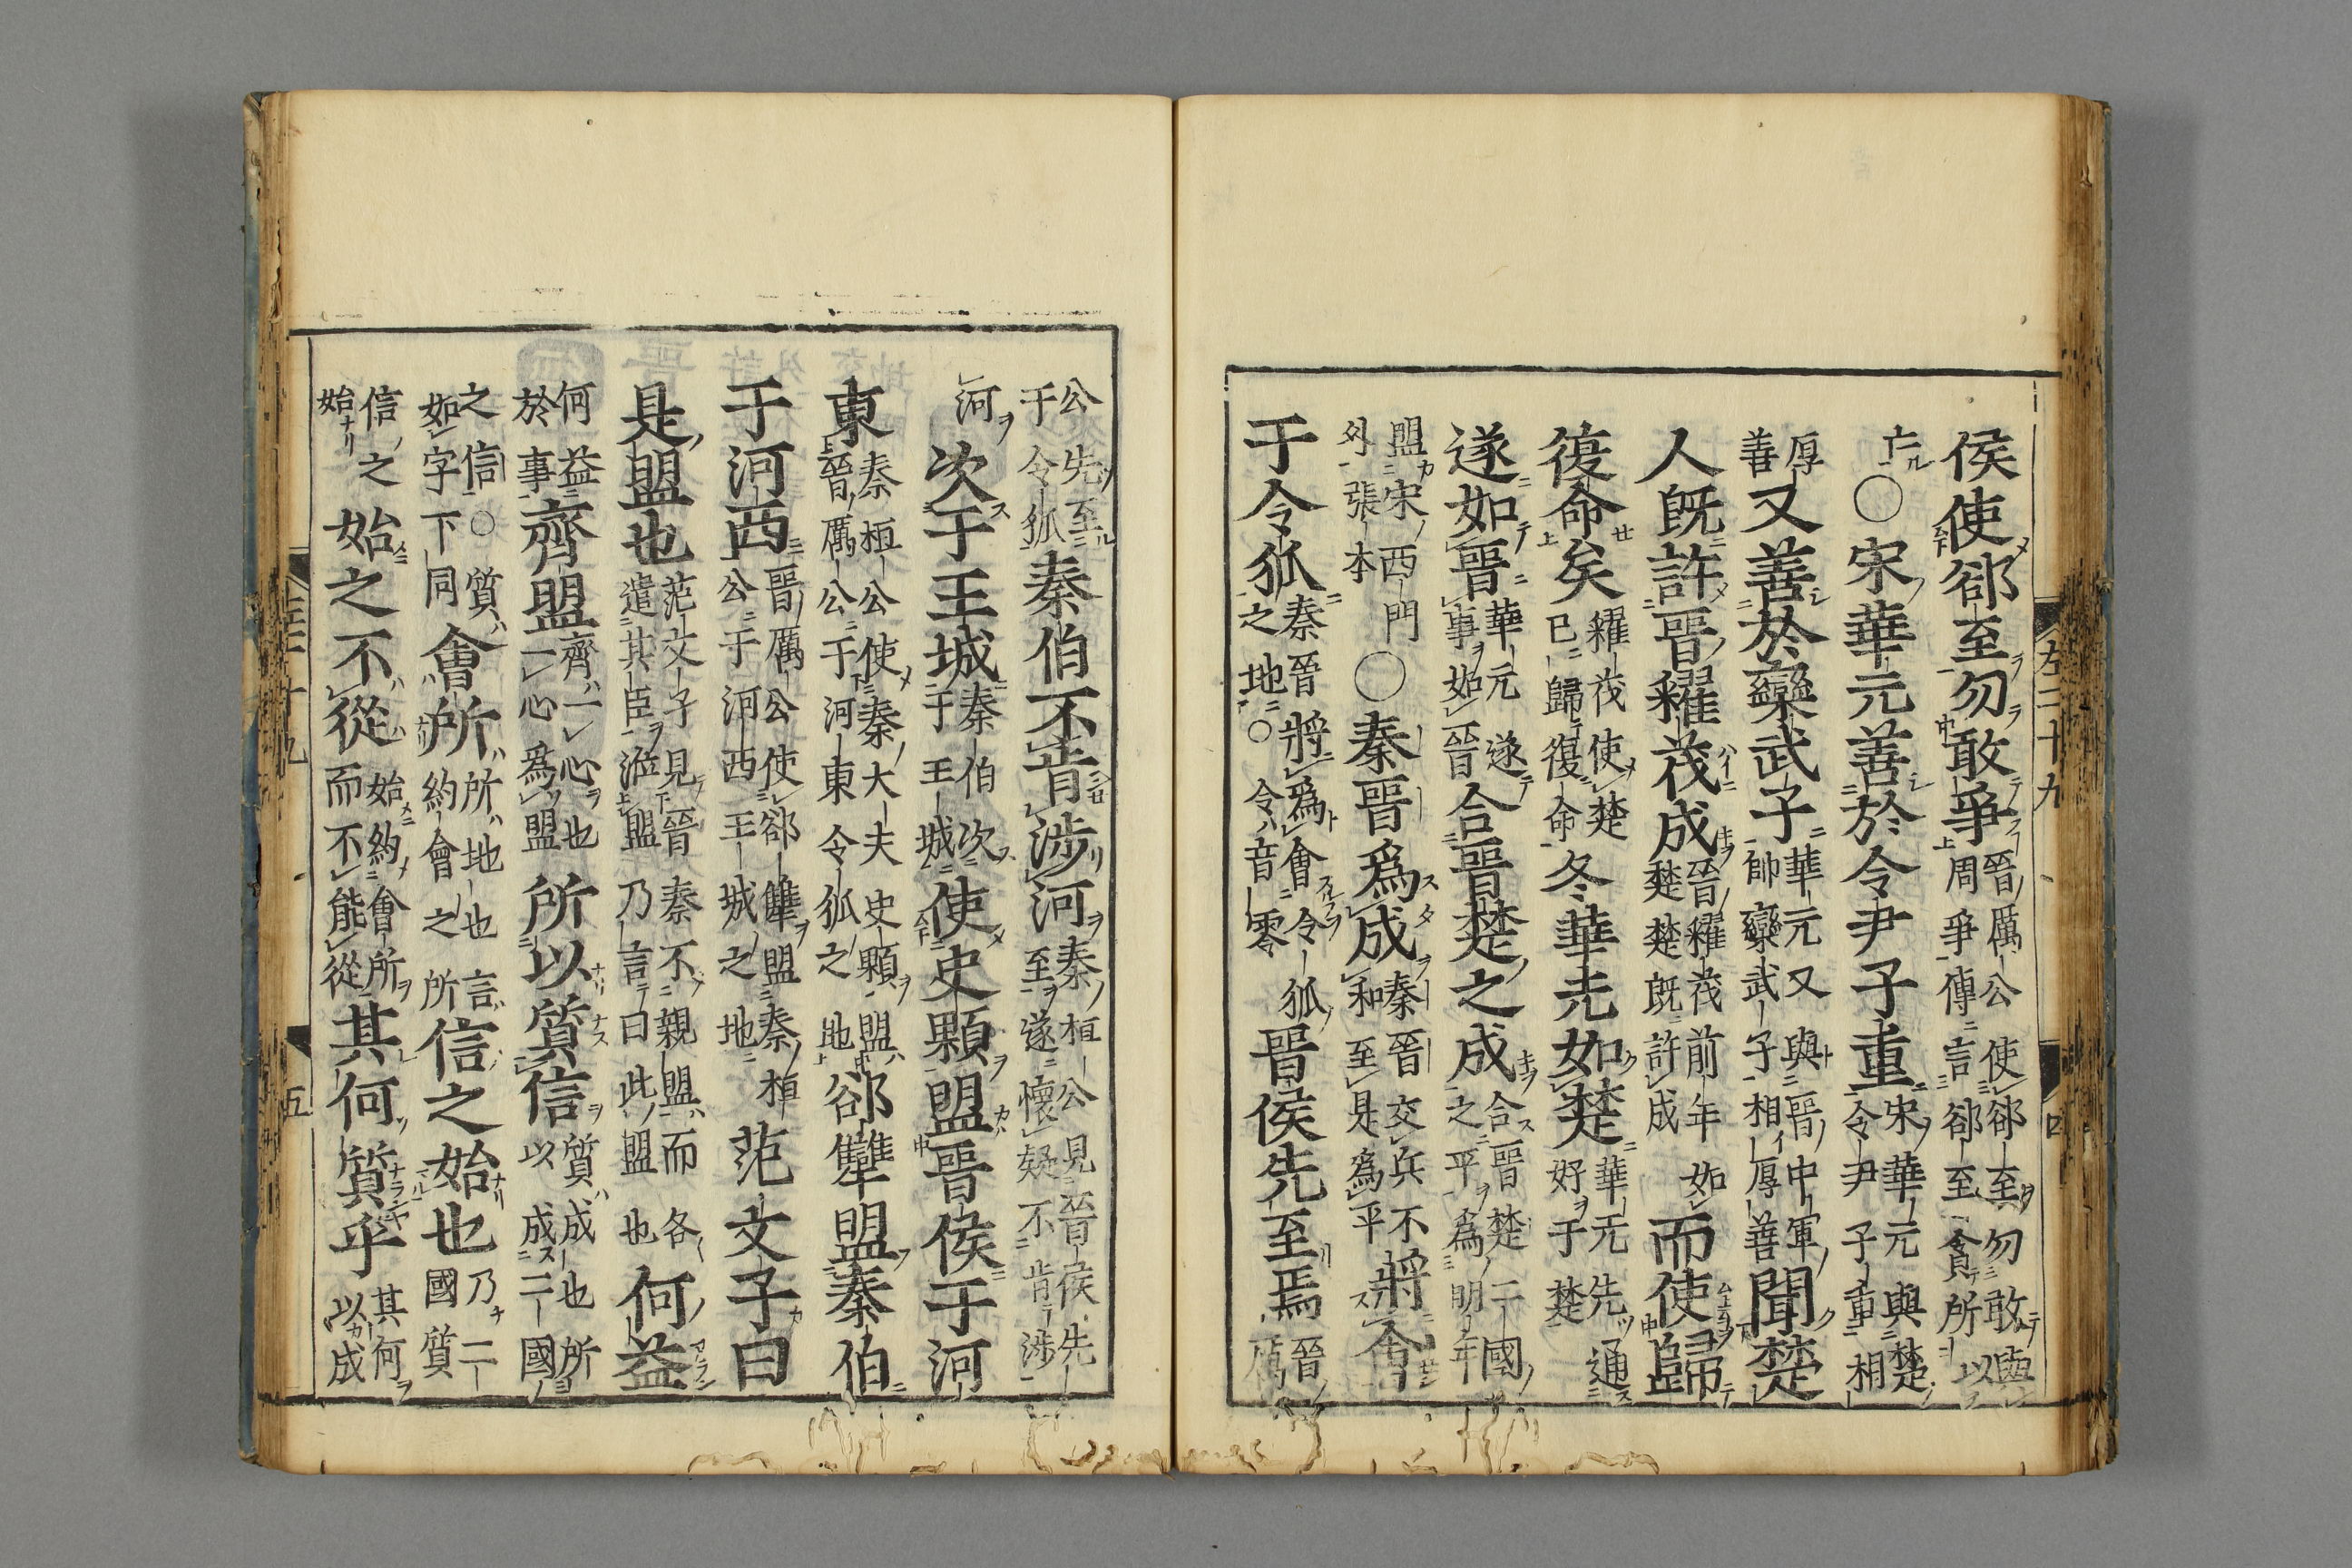 侯使郤至勿敢爭晉厲公使郤至勿敢與周爭傳言郤至貪所以
亡○宋華元善於令尹子重宋華元與楚令尹子重相
厚善又善於欒武子華元又與晉中軍帥欒武子相厚善聞楚
人既許晉糴茷成晉糴茷前年如楚楚既許成而使歸
復命矣糴茷使楚已歸復命冬華元如楚華元先通好于楚
遂如晉華元遂事如晉合晉楚之成合晉楚二國之平爲明年
盟宋西門外張本○秦晉爲成秦晉交兵不和至是爲平將會
于令狐秦晉將爲會令狐之地○令音零晉侯先至焉晉厲
公先至于令狐秦伯不肯涉河秦桓公見晉侯先至遂懷疑不肯涉
河次于王城秦伯次于王城使史顆盟晉侯于河
東秦桓公使秦大夫史顆盟晉厲公于河東令狐之地郤犨盟秦伯
于河西晉厲公使郤犨盟秦桓公于河西王城之地范文子曰
是盟也范文子見晉秦不親盟而各遣其臣涖盟乃言曰此盟也何益
何益於事齊盟齊一心也一心爲盟所以質信質成也所以成二國
之信○質如字下同會所所地也約會之所言信之始也乃二國質
信之始始之不從始約會所而不能從其何質乎其何以成
左二十九
四
左二十九
五